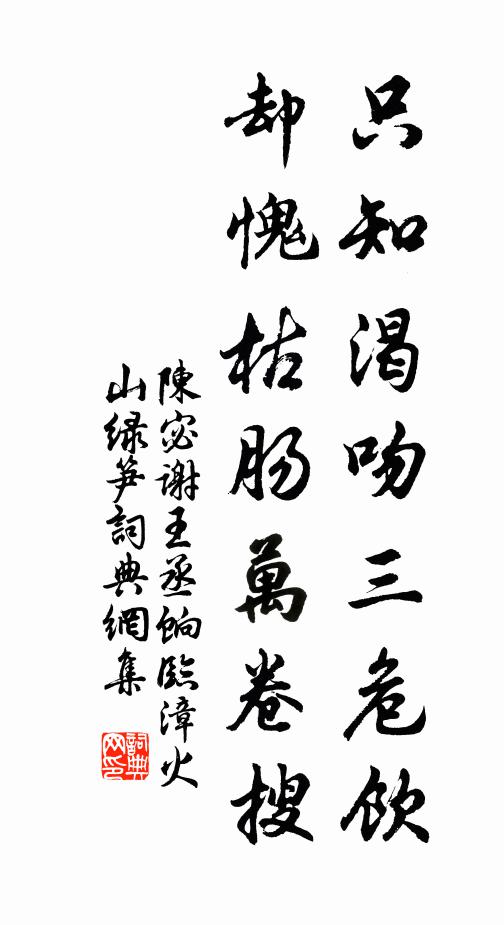 只知渴吻三危飲
却愧枯腸萬卷搜
陳宓謝王丞餉臨漳火
山绿笋詞典網集
詞典
网印